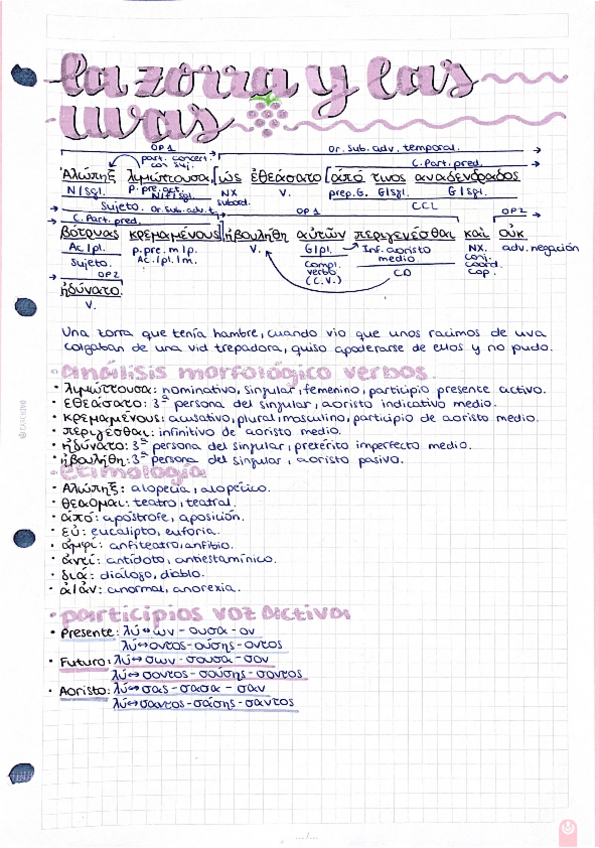 la zorra y las
uvas
OP1 Or. Sub. adv. temporal.
part. concert. con suj. C. Part. pred.
Ἀλώπηξ λιμώττουσα, [ὡς ἐθεάσατο [ἀπό τινος ἀναδενδράδος
N/sgl. P. pre. act. N/F/sgl. NX subord. V. prep. G. G/sgl. G/sgl.
Sujeto. Or. Sub. adv. t. CCL
C. Part. pred. OP1 OP2
βότρυας κρεμαμένους] ἠβουλήθη αὐτῶν περιγενέσθαι καὶ οὐκ
Ac/pl. P. pre. m/p. Ac./pl./m. V. G/pl. Inf. aoristo medio NX. conj. coord. cop. adv. negación
Sujeto. compl. verbo (C.V.) CD
OP2
ἠδύνατο.
V.
Una zorra que tenía hambre, cuando vio que unos racimos de uva
colgaban de una vid trepadora, quiso apoderarse de ellos y no pudo.
· análisis morfológico verbos.
· λιμώττουσα: nominativo, singular, femenino, participio presente activo.
· εθεάσατο: 3ª persona del singular, aoristo indicativo medio.
· κρεμαμένους: acusativo, plural, masculino, participio de aoristo medio.
· περιγεσθαι: infinitivo de aoristo medio.
· ἠδύνατο: 3ª persona del singular, pretérito imperfecto medio.
· ἠβουλήθη: 3ª persona del singular, aoristo pasivo.
· etimología
· Αλώπηξ: alopecia, alopécico.
· θεαομαι: teatro, teatral.
· ἀπό: apóstrofe, aposición.
· εὐ: eucalipto, euforia.
· ἀμφι: anfiteatro, anfibio.
· ἀντί: antídoto, antiestamínico.
· διά: diálogo, diablo.
· ἀ/ἀν: anormal, anorexia.
· participios voz activa
· Presente: λύ↔ων - ουσα - ον
λύ↔οντος - ούσης - οντος
· Futuro: λύ↔σων - σουσα - σον
λύ↔σοντος - σούσης - σοντος
· Aoristo: λύ↔σας - σασα - σαν
λύ↔σαντος - σάσης - σαντος
..../....